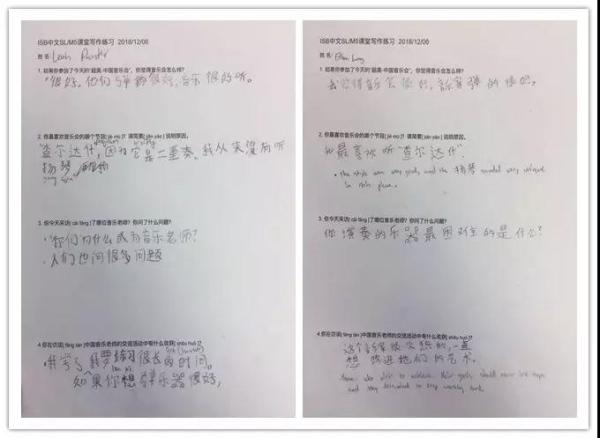 ISB中文SL/M5课堂写作练习 2018/12/06
姓名: Leah
1. 如果你参加了今天的"超美·中国音乐会", 你觉得音乐会怎么样?
"很好, 他们弹都很好, 音乐很好听。
2. 你最喜欢音乐会的哪个节目[ jié mù ]? 请简要[ jiǎn yào ] 说明原因。
"查尔达什", 因为它是二重奏。我从来没有听
扬琴
3. 你今天采访[ cǎi fǎng ]了哪位音乐老师? 你问了什么问题?
· "你们为什么成为音乐老师?
· 人们也问很多问题
4. 你在访谈[ fǎng tán ]中国音乐老师的交流活动中有什么收获[ shōu huò ]?
· 我学了我要练习很长的时间。
如果你想弹乐器很好,
ISB中文SL/M5课堂写作练习 2018/12/06
姓名:
1. 如果你参加了今天的"超美·中国音乐会", 你觉得音乐会怎么样?
我觉得音乐会很好, 弹的很好,
2. 你最喜欢音乐会的哪个节目[ jié mù ]? 请简要[ jiǎn yào ] 说明原因。
我最喜欢听"查尔达什".
· the style was very good, and the 扬琴 sounded very unique
in this piece.
3. 你今天采访[ cǎi fǎng ]了哪位音乐老师? 你问了什么问题?
你演奏的乐器最困难的是什么?
4. 你在访谈[ fǎng tán ]中国音乐老师的交流活动中有什么收获[ shōu huò ]?
这个
想 他们的艺术.
who wish to achieve their goals should never lose hope
and stay devoted to keep working hard.